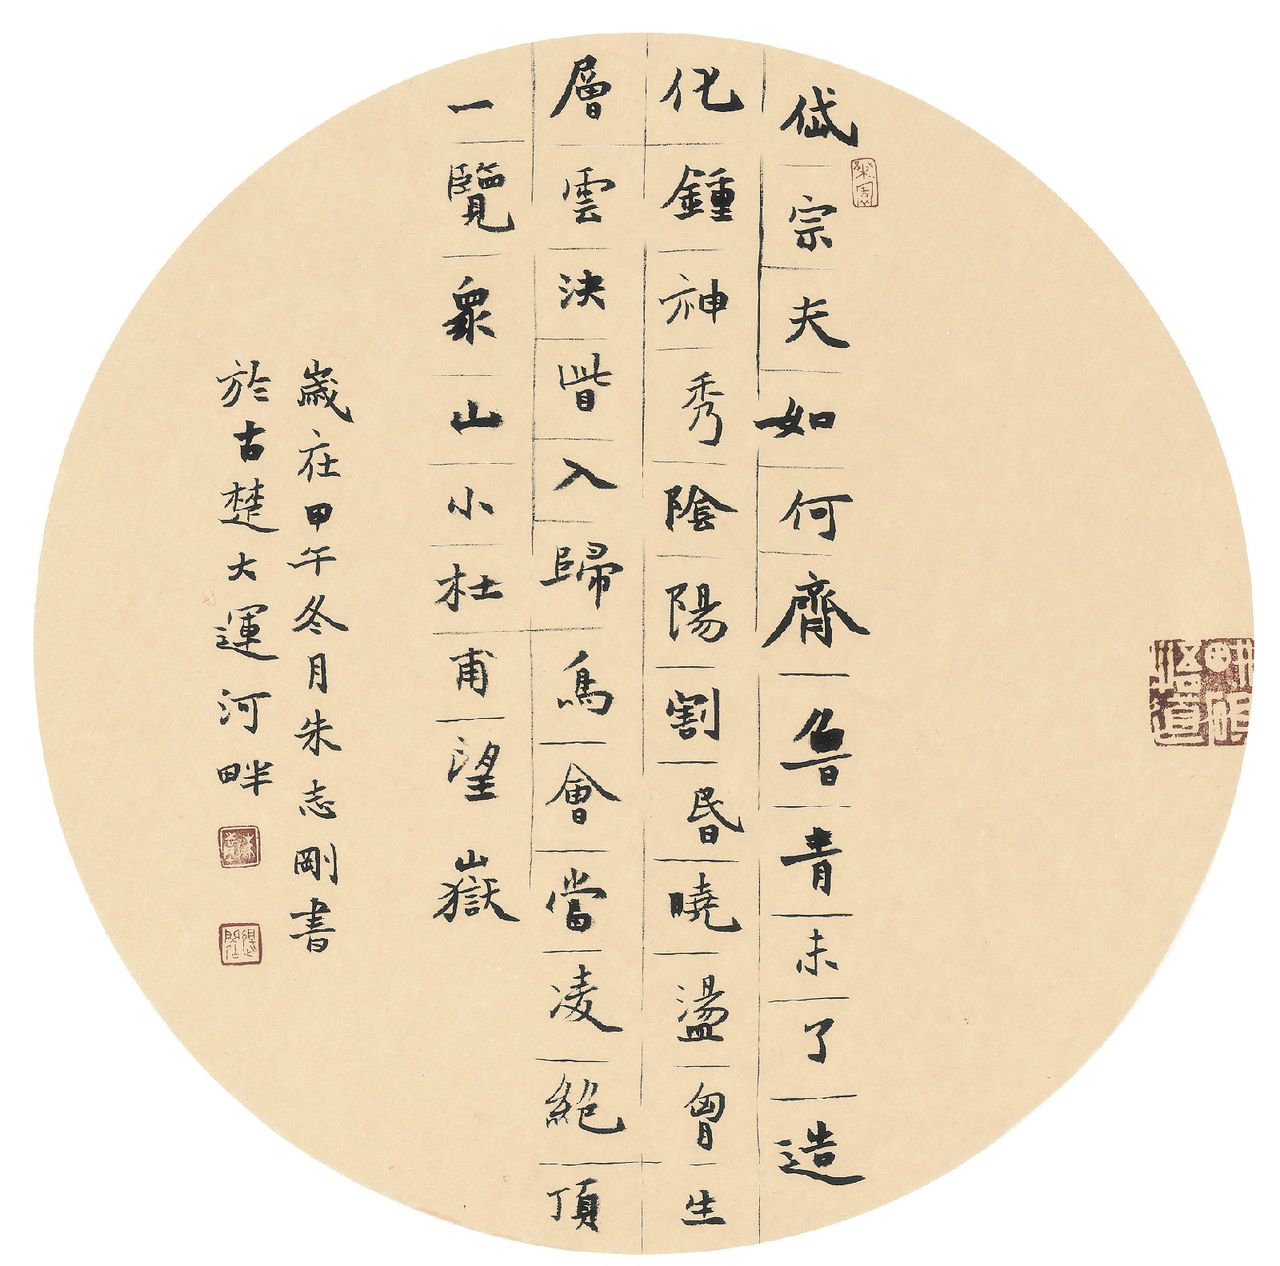 岱宗夫如何齊魯青未了造
化鍾神秀陰陽割昏曉盪胷生
層雲決眥入歸鳥會當凌絕頂
一覽眾山小杜甫望嶽
歲在甲午冬月朱志剛書
於古楚大運河畔